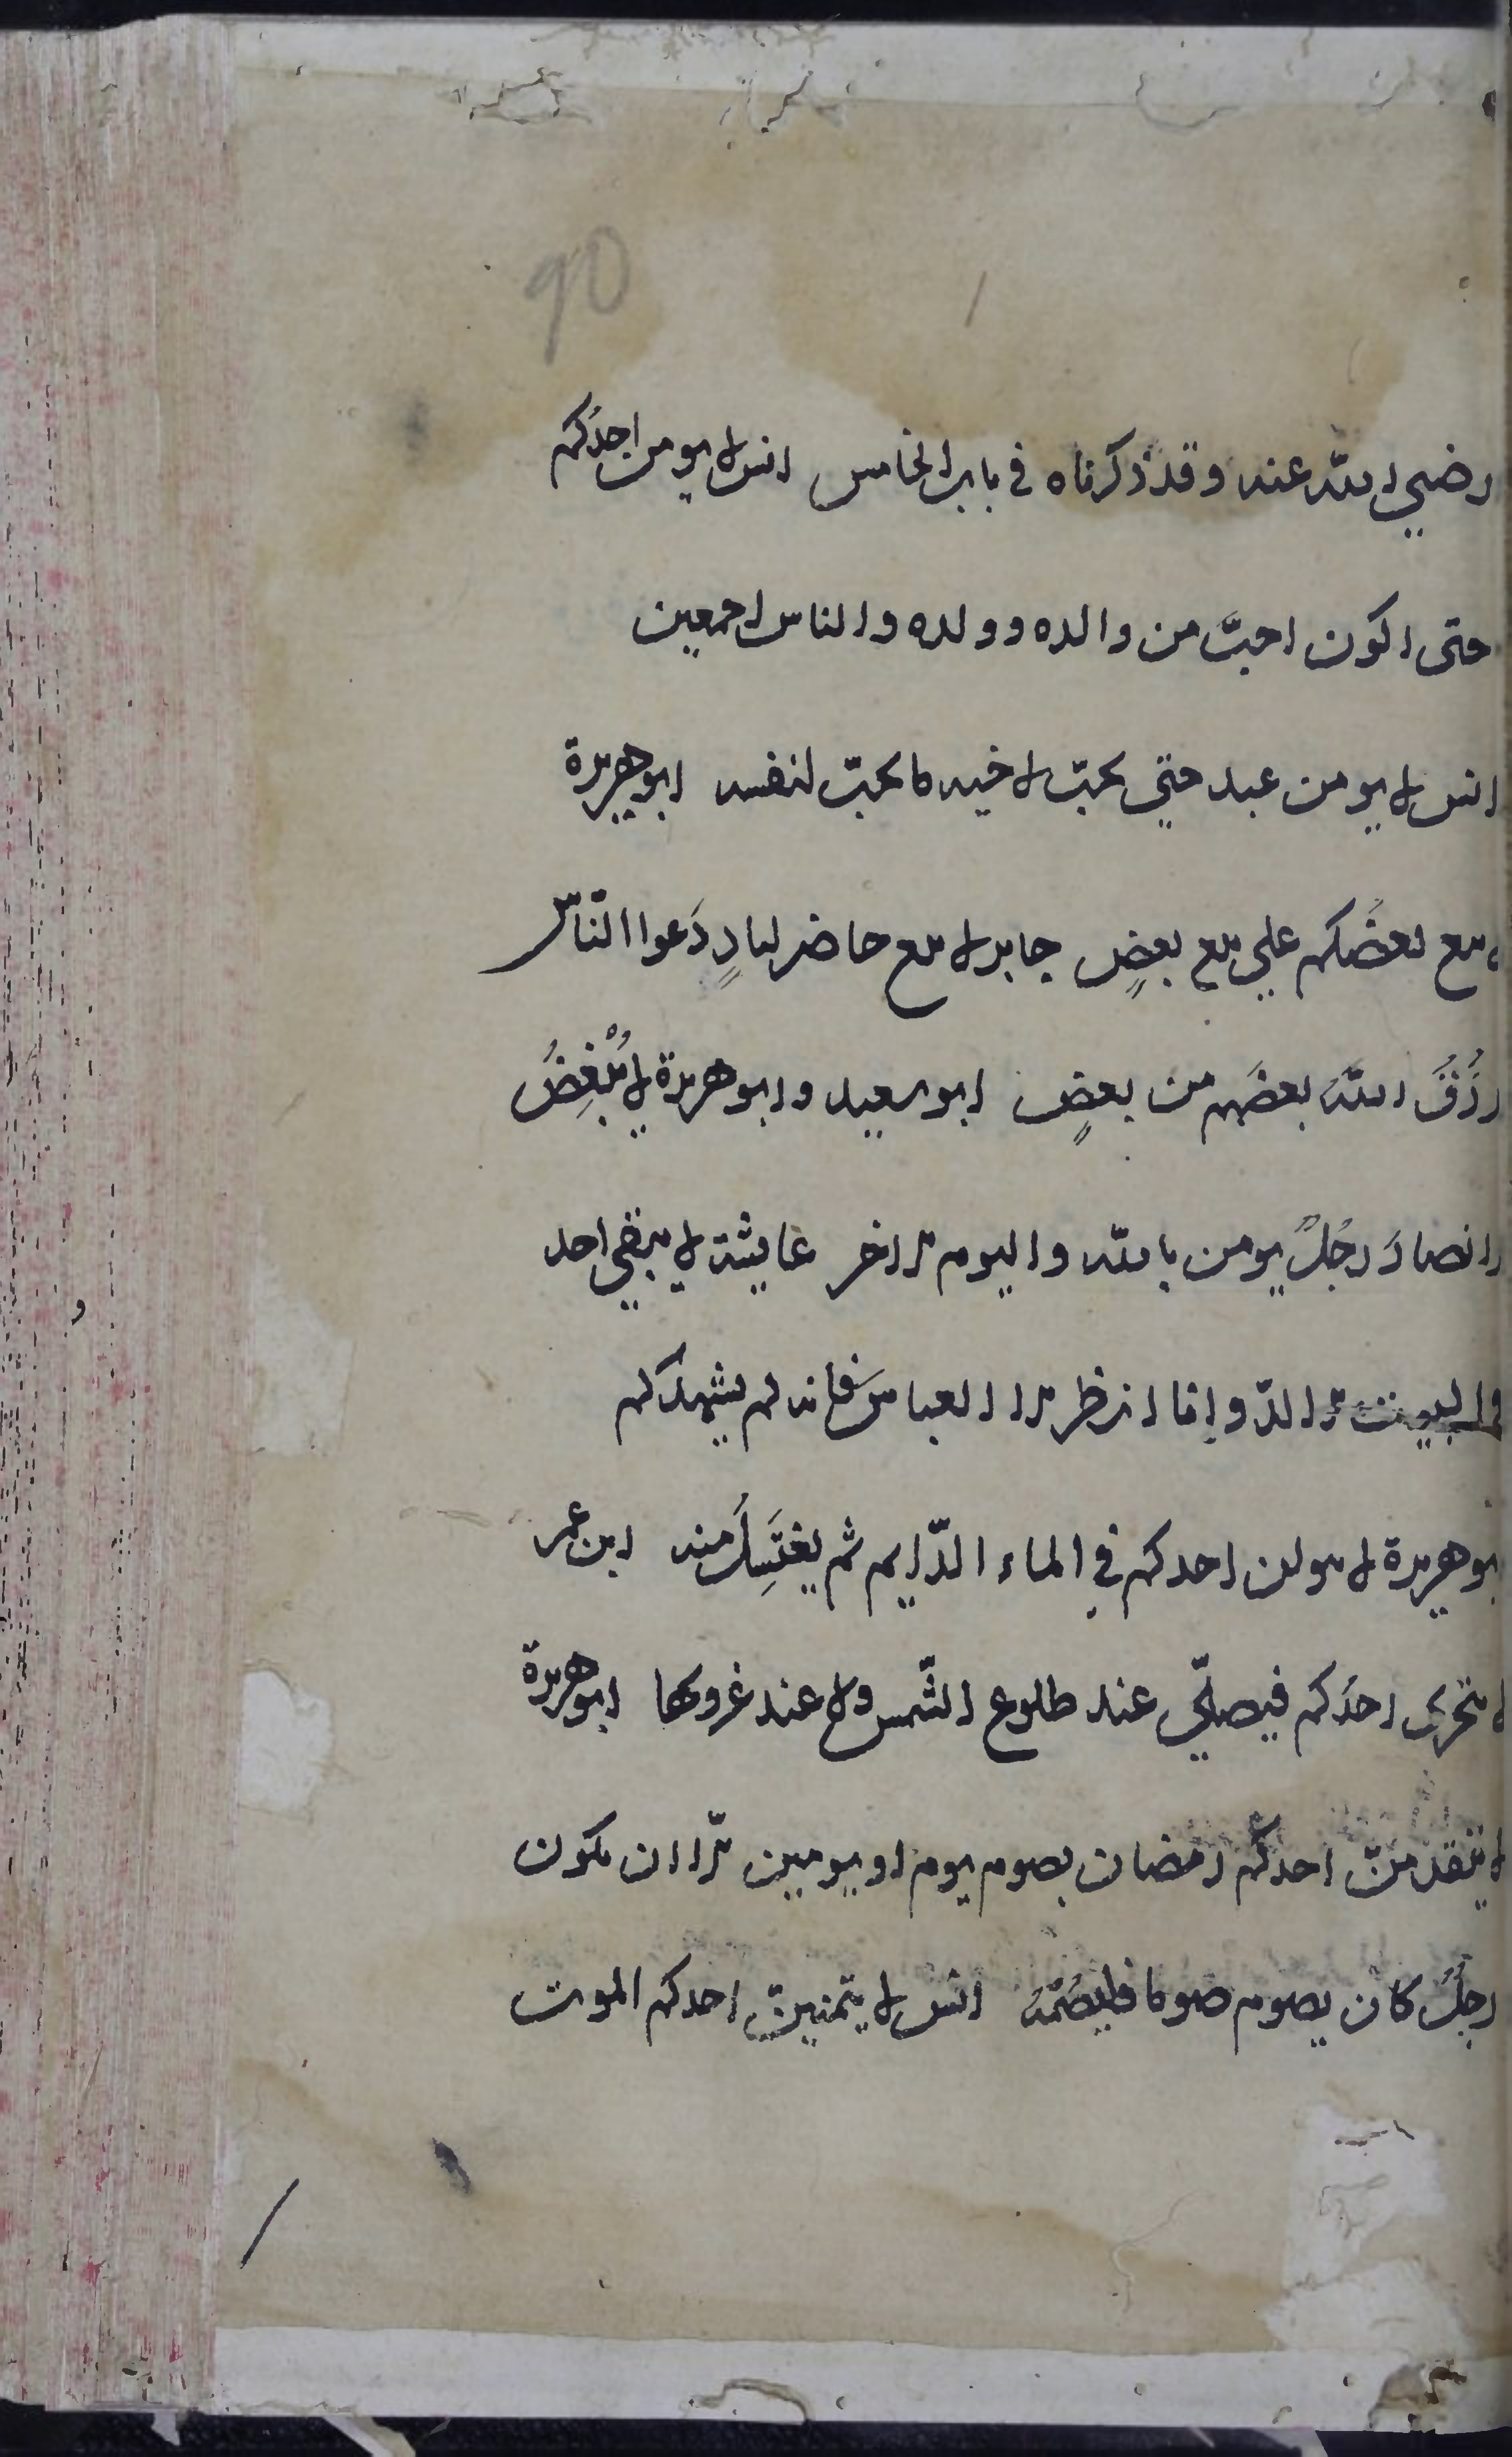 90
رضي الله عنه وقد ذكرناه في باب الخامس انس لا يومن احدكم
حتى اكون احبَّ من والده وولده والناس اجمعين
انس لا يومن عبد حتي يحبّ لاخيه ما يحبّ لنفسه ابو هريرة
لا يبع بعضُكم علي بيع بعضٍ جابر لا يبع حاضر لبادٍ دَعوا النّاس
يرزُقُ اللّٰهُ بعضَهم من بعضٍ ابو سعيد وابو هريرة لا يُبْغِضُ
الانصارَ رجُلٌ يومن بالله واليوم الاخر عايشة لا يبقي احد
في البيت الا لدّ وانا انظر الا العباسَ فانه لم يشهدكم
ابو هريرة لا يبولن احدكم في الماء الدّايم ثم يغتَسِلُ منه ابن عمر
لا يتحرى احدُكم فيصلّي عند طلوع الشّمس ولا عند غروبها ابو هريرة
لا يتقدمنّ احدكم رمضان بصوم يوم او يومين الّا ان يكون
رجلٌ كان يصوم صوما فليصُمْهُ انس لا يتمنينّ احدكم الموت